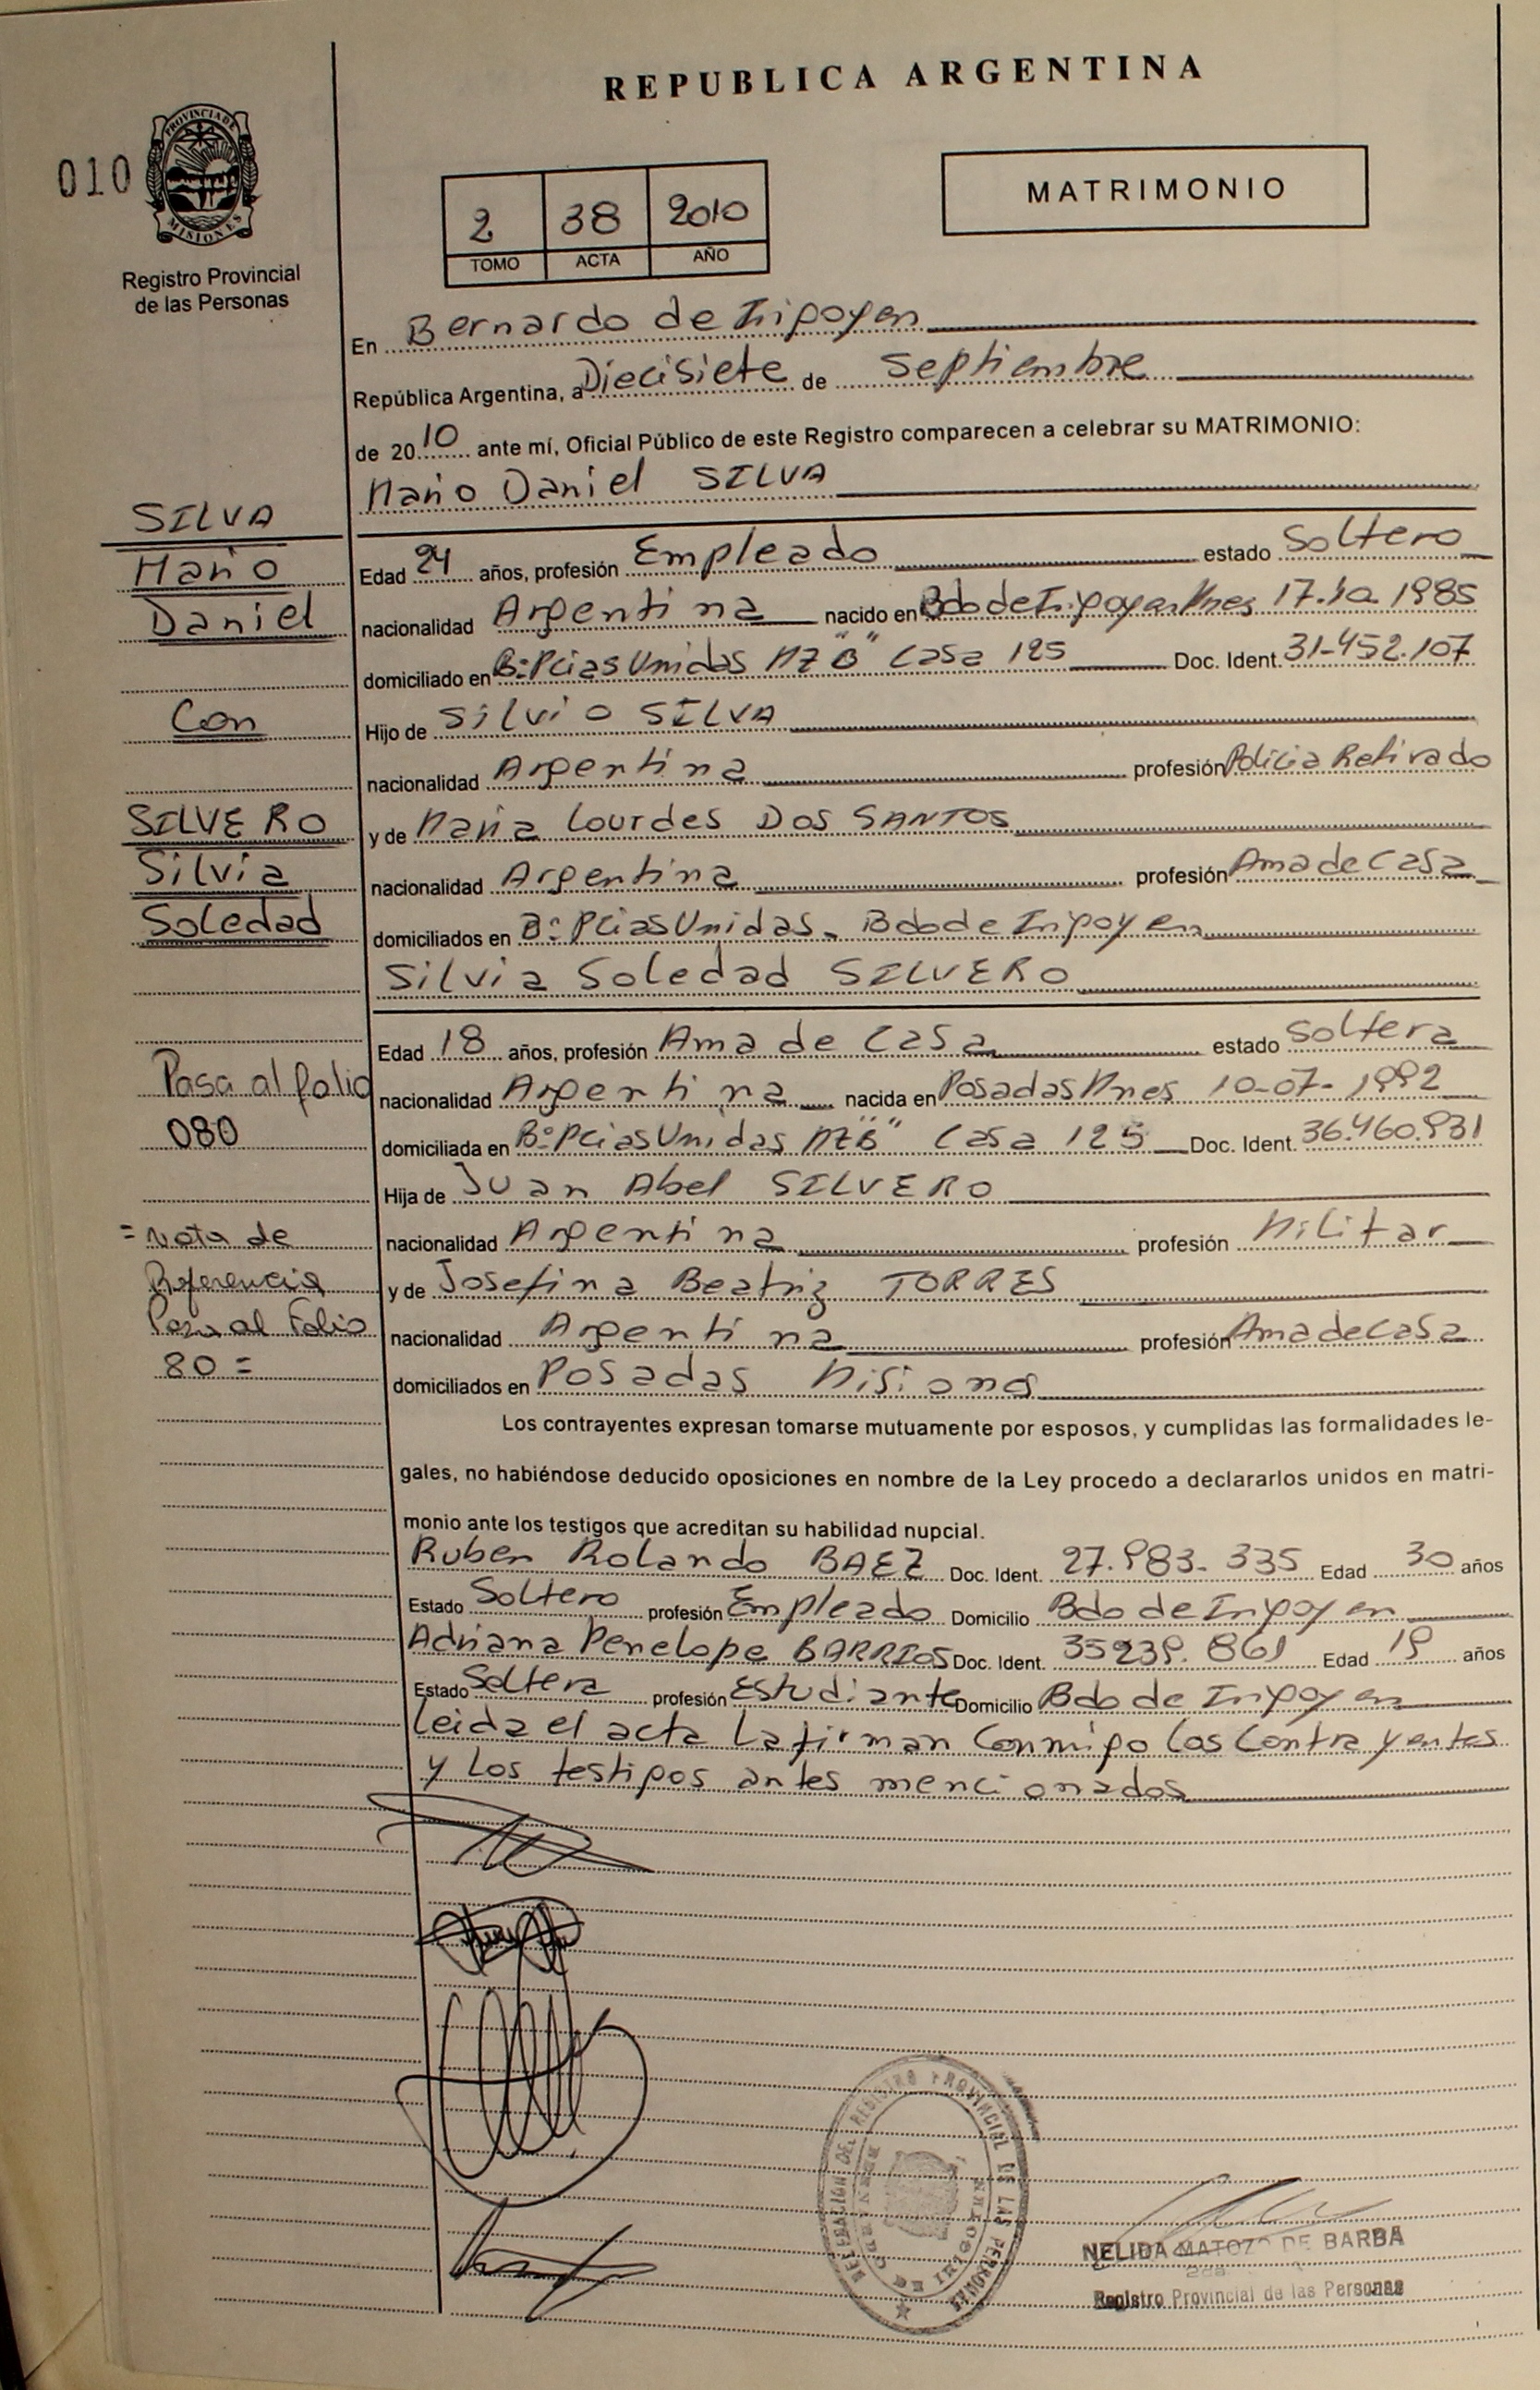 REPUBLICA ARGENTINA
010
PROVINCIA DE
MISIONES
Registro Provincial
de las Personas
2 38 2010
TOMO ACTA AÑO
MATRIMONIO
En Bernardo de Irigoyen
República Argentina, a Diecisiete de Septiembre
de 2010 ante mí, Oficial Público de este Registro comparecen a celebrar su MATRIMONIO:
Mario Daniel SILVA
SILVA
Mario
Daniel
Con
SILVERO
Silvia
Soledad
Pasa al folio
080
= Nota de
Referencia
Pasa al Folio
80 =
Edad 24 años, profesión Empleado estado Soltero
nacionalidad Argentina nacido en Bdo de Irigoyen Mnes 17.10.1985
domiciliado en B:º Pcias Unidas MZ "B" Casa 125 Doc. Ident. 31-452.107
Hijo de Silvio SILVA
nacionalidad Argentina profesión Policia Retirado
y de Maria Lourdes DOS SANTOS
nacionalidad Argentina profesión Ama de Casa
domiciliados en B:º Pcias Unidas. Bdo de Irigoyen
Silvia Soledad SILVERO
Edad 18 años, profesión Ama de Casa estado Soltera
nacionalidad Argentina nacida en Posadas Mnes 10-07-1992
domiciliada en B:º Pcias Unidas MZ "B" Casa 125 Doc. Ident. 36.460.931
Hija de Juan Abel SILVERO
nacionalidad Argentina profesión Militar
y de Josefina Beatriz TORRES
nacionalidad Argentina profesión Ama de Casa
domiciliados en Posadas Misiones
Los contrayentes expresan tomarse mutuamente por esposos, y cumplidas las formalidades le-
gales, no habiéndose deducido oposiciones en nombre de la Ley procedo a declararlos unidos en matri-
monio ante los testigos que acreditan su habilidad nupcial.
Ruben Rolando BAEZ Doc. Ident. 27.983.335 Edad 30 años
Estado Soltero profesión Empleado Domicilio Bdo de Irigoyen
Adriana Penelope BARRIOS Doc. Ident. 35239.861 Edad 19 años
Estado Soltera profesión Estudiante Domicilio Bdo de Irigoyen
Leida el acta la firman Conmigo los Contrayentes
y los testigos antes mencionados
DELEGACION DEL REGISTRO PROVINCIAL DE LAS PERSONAS
NELIDA MATOZO DE BARBA
Registro Provincial de las Personas